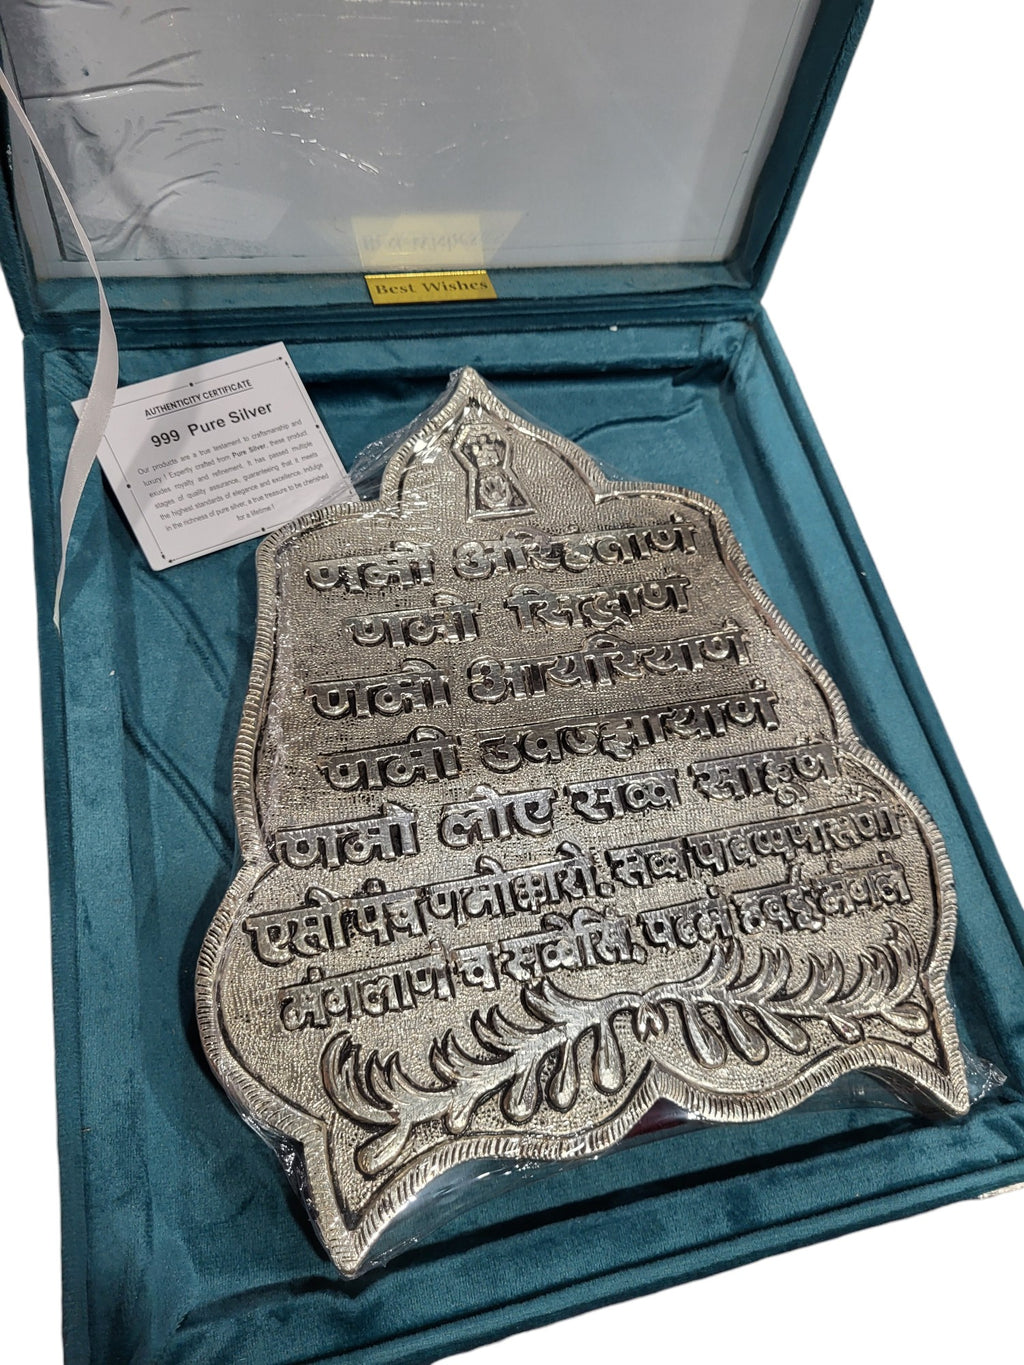 Best Wishes
AUTHENTICITY CERTIFICATE
999 Pure Silver
Our products are a true testament to craftsmanship and
luxury ! Expertly crafted from Pure Silver, these product
exudes royalty and refinement. It has passed multiple
stages of quality assurance, guaranteeing that it meets
the highest standards of elegance and excellence. Indulge
in the richness of pure silver, a true treasure to be cherished
for a lifetime !
णमो अरिहंताणं
णमो सिद्धाणं
णमो आयरियाणं
णमो उवज्झायाणं
णमो लोए सव्व साहूणं
एसो पंच णमोक्कारो, सव्व पावप्पणासणो
मंगलाणं च सव्वेसिं, पढमं हवई मंगलं